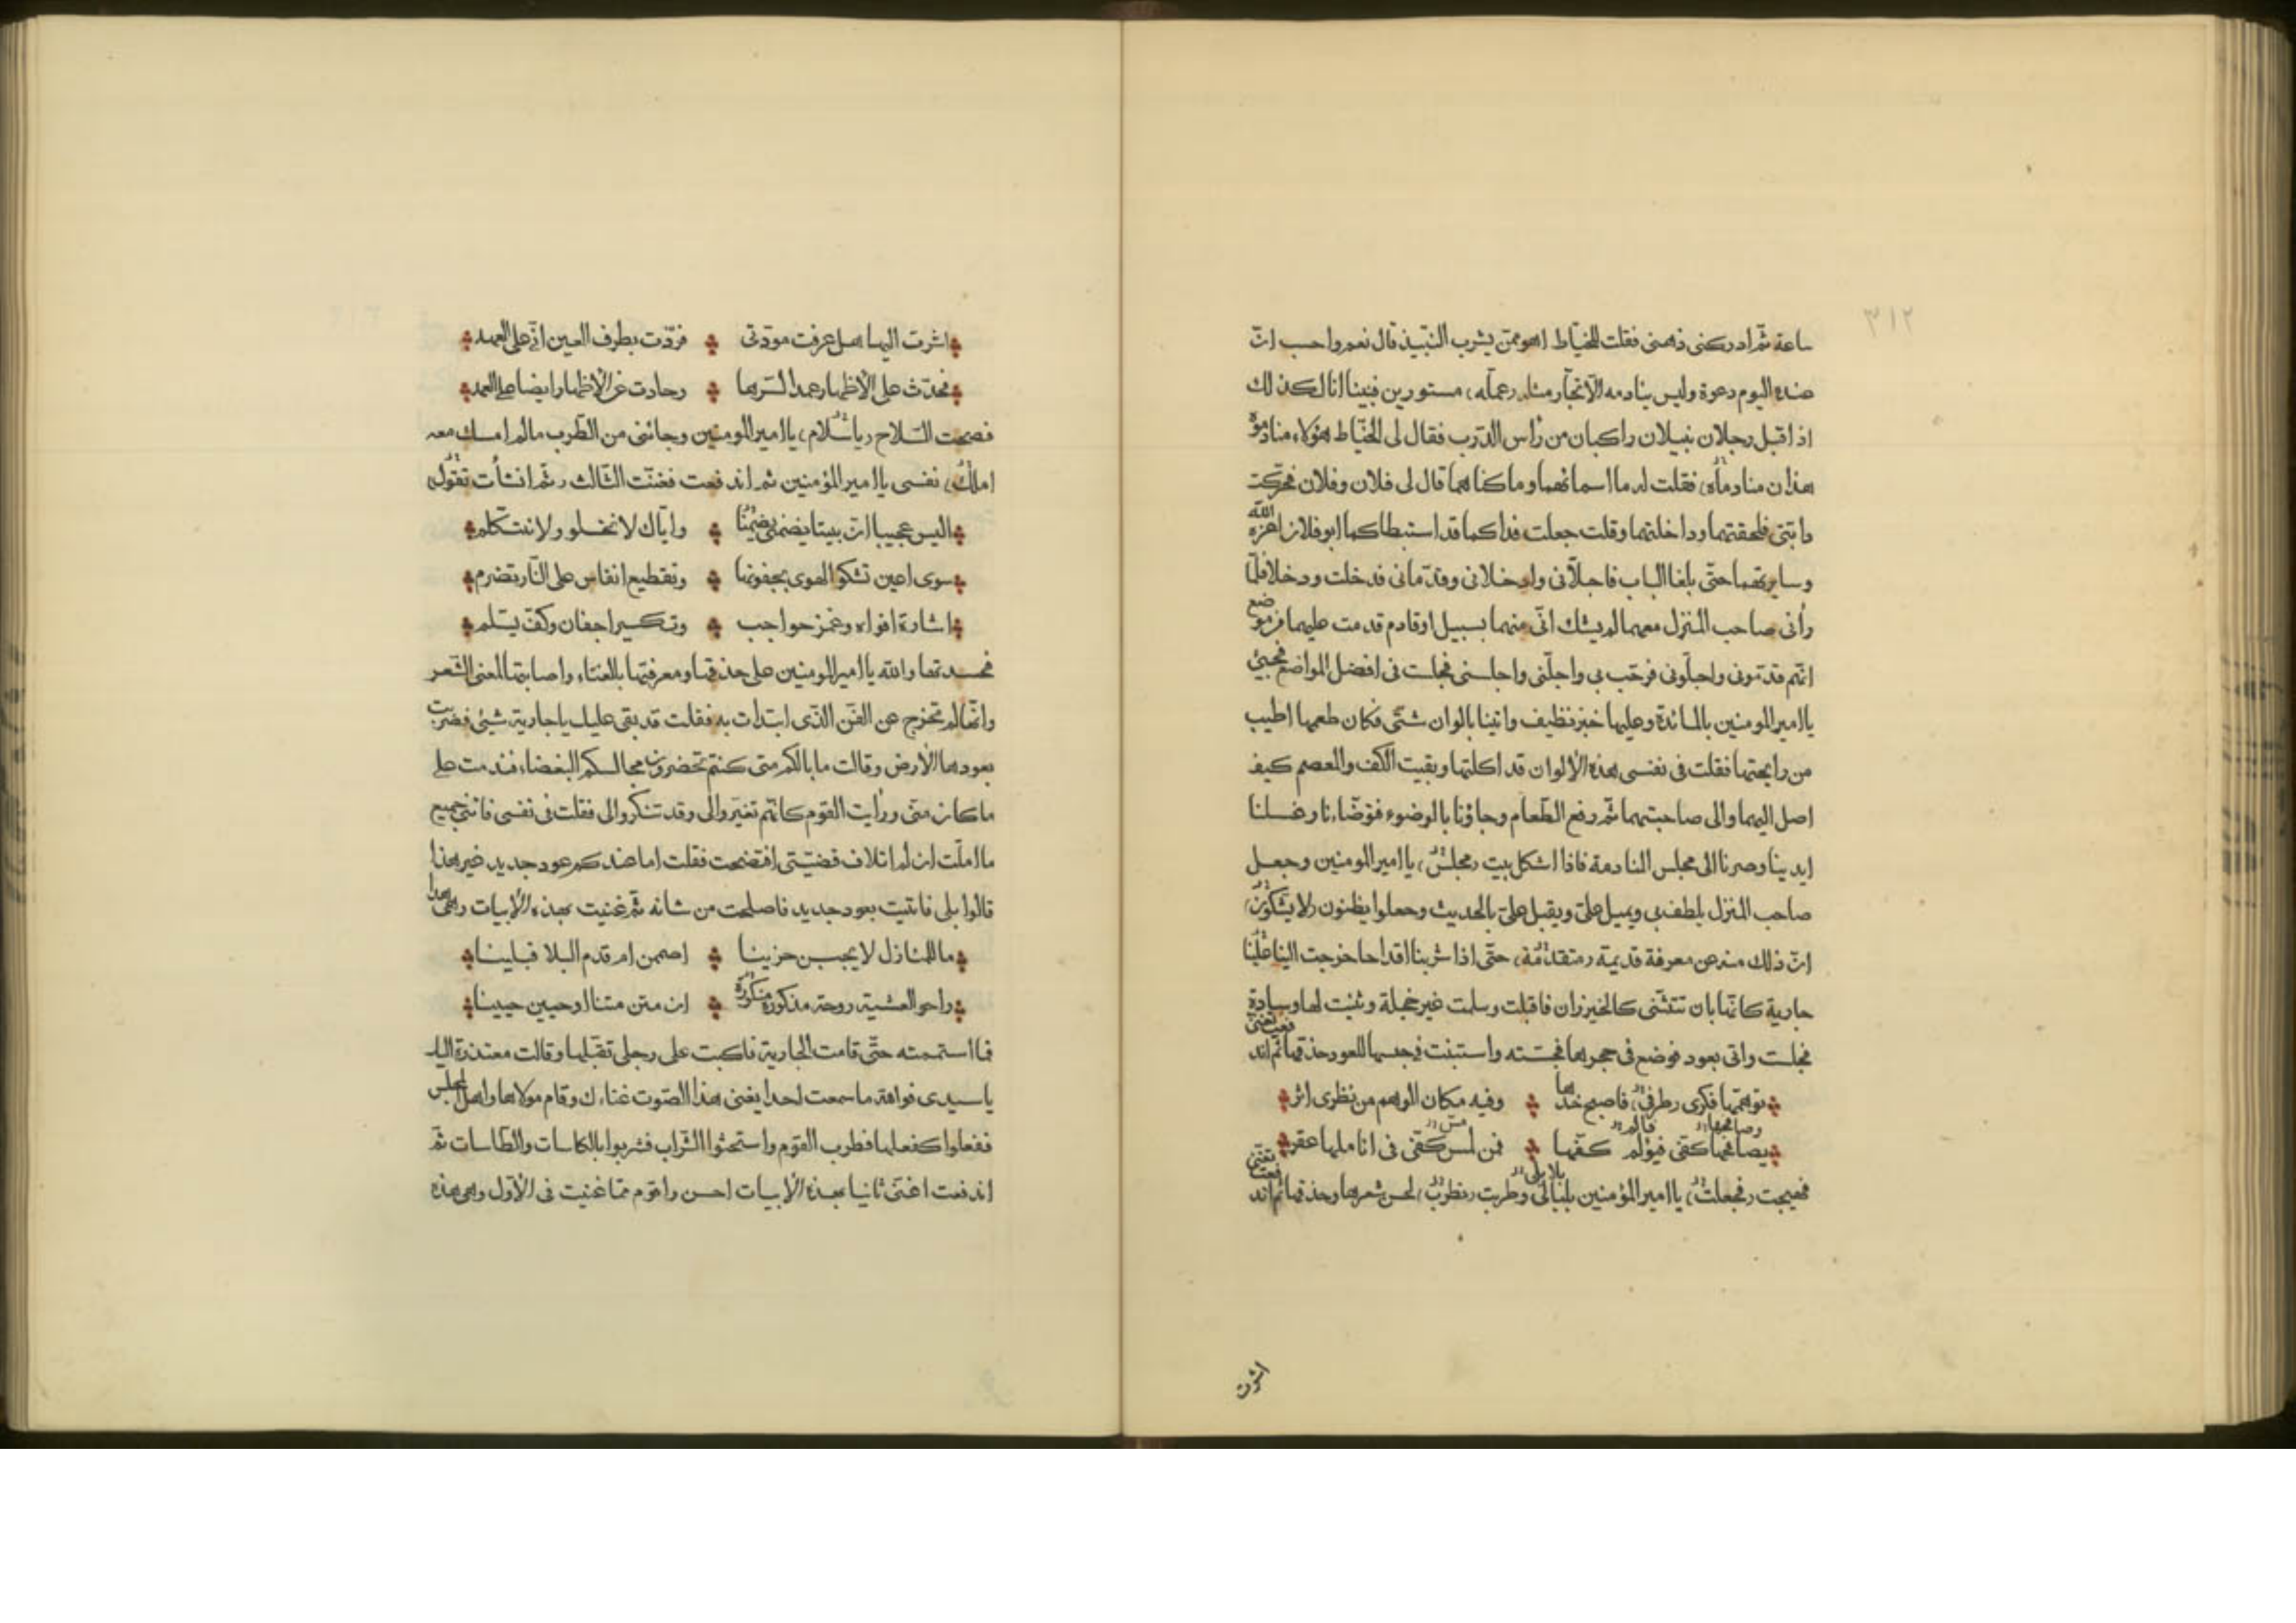 ٣١٢
ساعة ثم ادركنى ذهنى فقلت للخيّاط اهو ممّن يشرب النّبيذ قال نعم واحسب انّ
عنده اليوم دعوة وليس ينادمه الّا تجّار مثله (عمّله) مستورين فبينا انا لكذلك
اذ اقبل رجلان نبيلان راكبان من رأس الدّرب فقال لى الخيّاط هؤلاء منادموه
هذان منادماه فقلت له ما اسمائهما وما كناهما قال لى فلان وفلان فحرّكت
دابتى فلحقتهما وداخلتهما وقلت جعلت فداكما قد استبطاكما ابو فلان اعزه الله
وسايرتهما حتّى بلغا الباب فاجلّانى وادخلانى وقدّمانى فدخلت ودخلا فلمّا
رأنى صاحب المنزل معهما لم يشك انّى منهما بسبيل او قادم قدمت عليهما من موضع
انّهم قدّمونى واجلّونى فرحّب بى واجلّنى واجلسنى فجلست فى افضل المواضع فجيئ
يا امير المومنين بالمائدة وعليها خبز نظيف واتينا بالوان شتّى فكان طعمها اطيب
من رايحتها فقلت فى نفسى هذه الألوان قد اكلتها وبقيت الكف والمعصم كيف
اصل اليهما والى صاحبتهما ثمّ رفع الطّعام وجاؤنا بالوضوء فتوضّاءنا وغسلنا
ايدينا وصرنا الى مجلس المنادمة فاذا اشكل بيت (مجلس) يا امير المومنين وجعل
صاحب المنزل يلطف بى ويميل علىّ ويقبل علىّ بالحديث وجعلوا يظنون (لا يشكون)
انّ ذلك منه عن معرفة قديمة (متقدّمة) حتّى اذا شربنا اقداحا خرجت الينا علينا
جارية كانّها بان تتثنّى كالخيزران فاقبلت وسلمت غير خجلة وثنيت لها وسادة
فجلست واتى بعود فوضع فى حجرها فجسّته واستبنت فى جسها للعود حذقها ثمّ اندفعت تغنى
توهّمها فكرى (طرفى) فاصبح خدّها وفيه مكان الوهم من نظرى اثر
وصافحها فالم
يصافحها كفّى فيؤلم كفّها فمن لمس كفّى فى اناملها عقر
مسّ
فهيجت (فجعلت) يا امير المؤمنين بلبالى بلابلى وطربت (نطرب) لحسن شعرها وحذقها ثمّ اندفعت تغنى
اشرت
اشرت اليها هل عرفت مودّتى فردّت بطرف العين انّى على العهد
فحدّث على الأظهار عمدا لسّرها وحادت عن الأظهار ايضا على العمد
فصحت السّلاح (يا سلام) يا امير المومنين وجائنى من الطّرب ما لم امسك معه
(املك) نفسى يا امير المؤمنين ثم اندفعت فغنّت الثّالث (ثمّ انشأت تقول)
اليس عجيبا انّ بيتا يضمنى يضمّنا وايّاك لا نخلو ولا نتكلم
سوى اعين تشكو الهوى بجفونها وتقطيع انفاس على النّار تضرم
اشارة افواه وغمز حواجب وتكسير اجفان وكفّ يسلم
فحسدتها والله يا امير المومنين على حذقها ومعرفتها بالغناء واصابتها لمعنى الشّعر
وانّها لم تخرج عن الفنّ الذّى ابتدات به فقلت قد بقى عليك يا جارية شيئ فضربت
بعودها الأرض وقالت ما بالكم متى كنتم تحضرون مجالسكم البغضاء فندمت على
ما كان منّى ورأيت القوم كانّهم تغيّروا لى وقد تنكّروا لى فقلت فى نفسى فاتنى جميع
ما امّلت ان لم اتلاف قضيّتى افتضحت فقلت اما عندكم عود جديد غير هذا
قالوا بلى فاتيت بعود جديد فاصلحت من شانه ثمّ غنيت بهذه الأبيات (وهى هذا)
ما للمنازل لا يجبن حزينا اصممن ام قدم البلا فبلينا
راحو العشية روحة مذكورة منكورة ان متن متنا او حيين حيينا
فما استممته حتّى قامت الجارية فاكبت على رجلى تقبّلها وقالت معتذرة اليك
يا سيدى فوالله ما سمعت احدا يغنى هذا الصّوت غناءك وقام مولاها واهل المجلس
ففعلوا كفعلها فطرب القوم واستحثوا الشّراب فشربوا بالكاسات والطّاسات ثمّ
اندفعت اغنّى ثانيا بهذه الأبيات احسن واقوم ممّا غنيت فى الأوّل وهى هذه